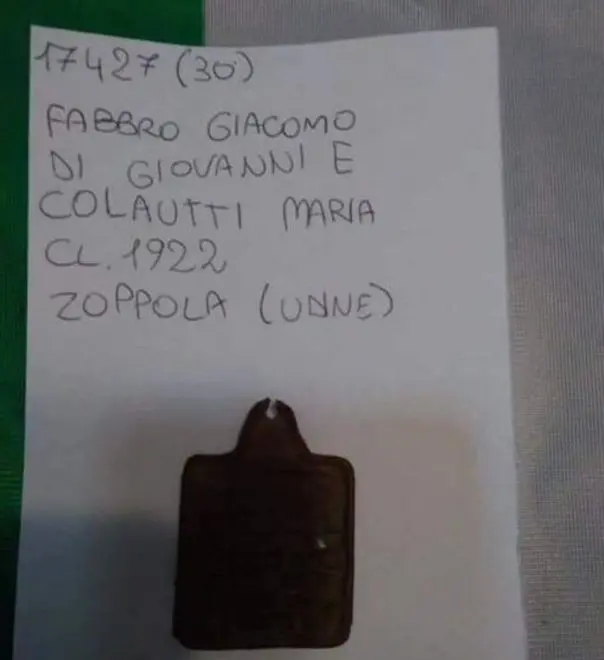 17427 (30)
FABBRO GIACOMO
DI GIOVANNI E
COLAUTTI MARIA
CL. 1922
ZOPPOLA (UDINE)